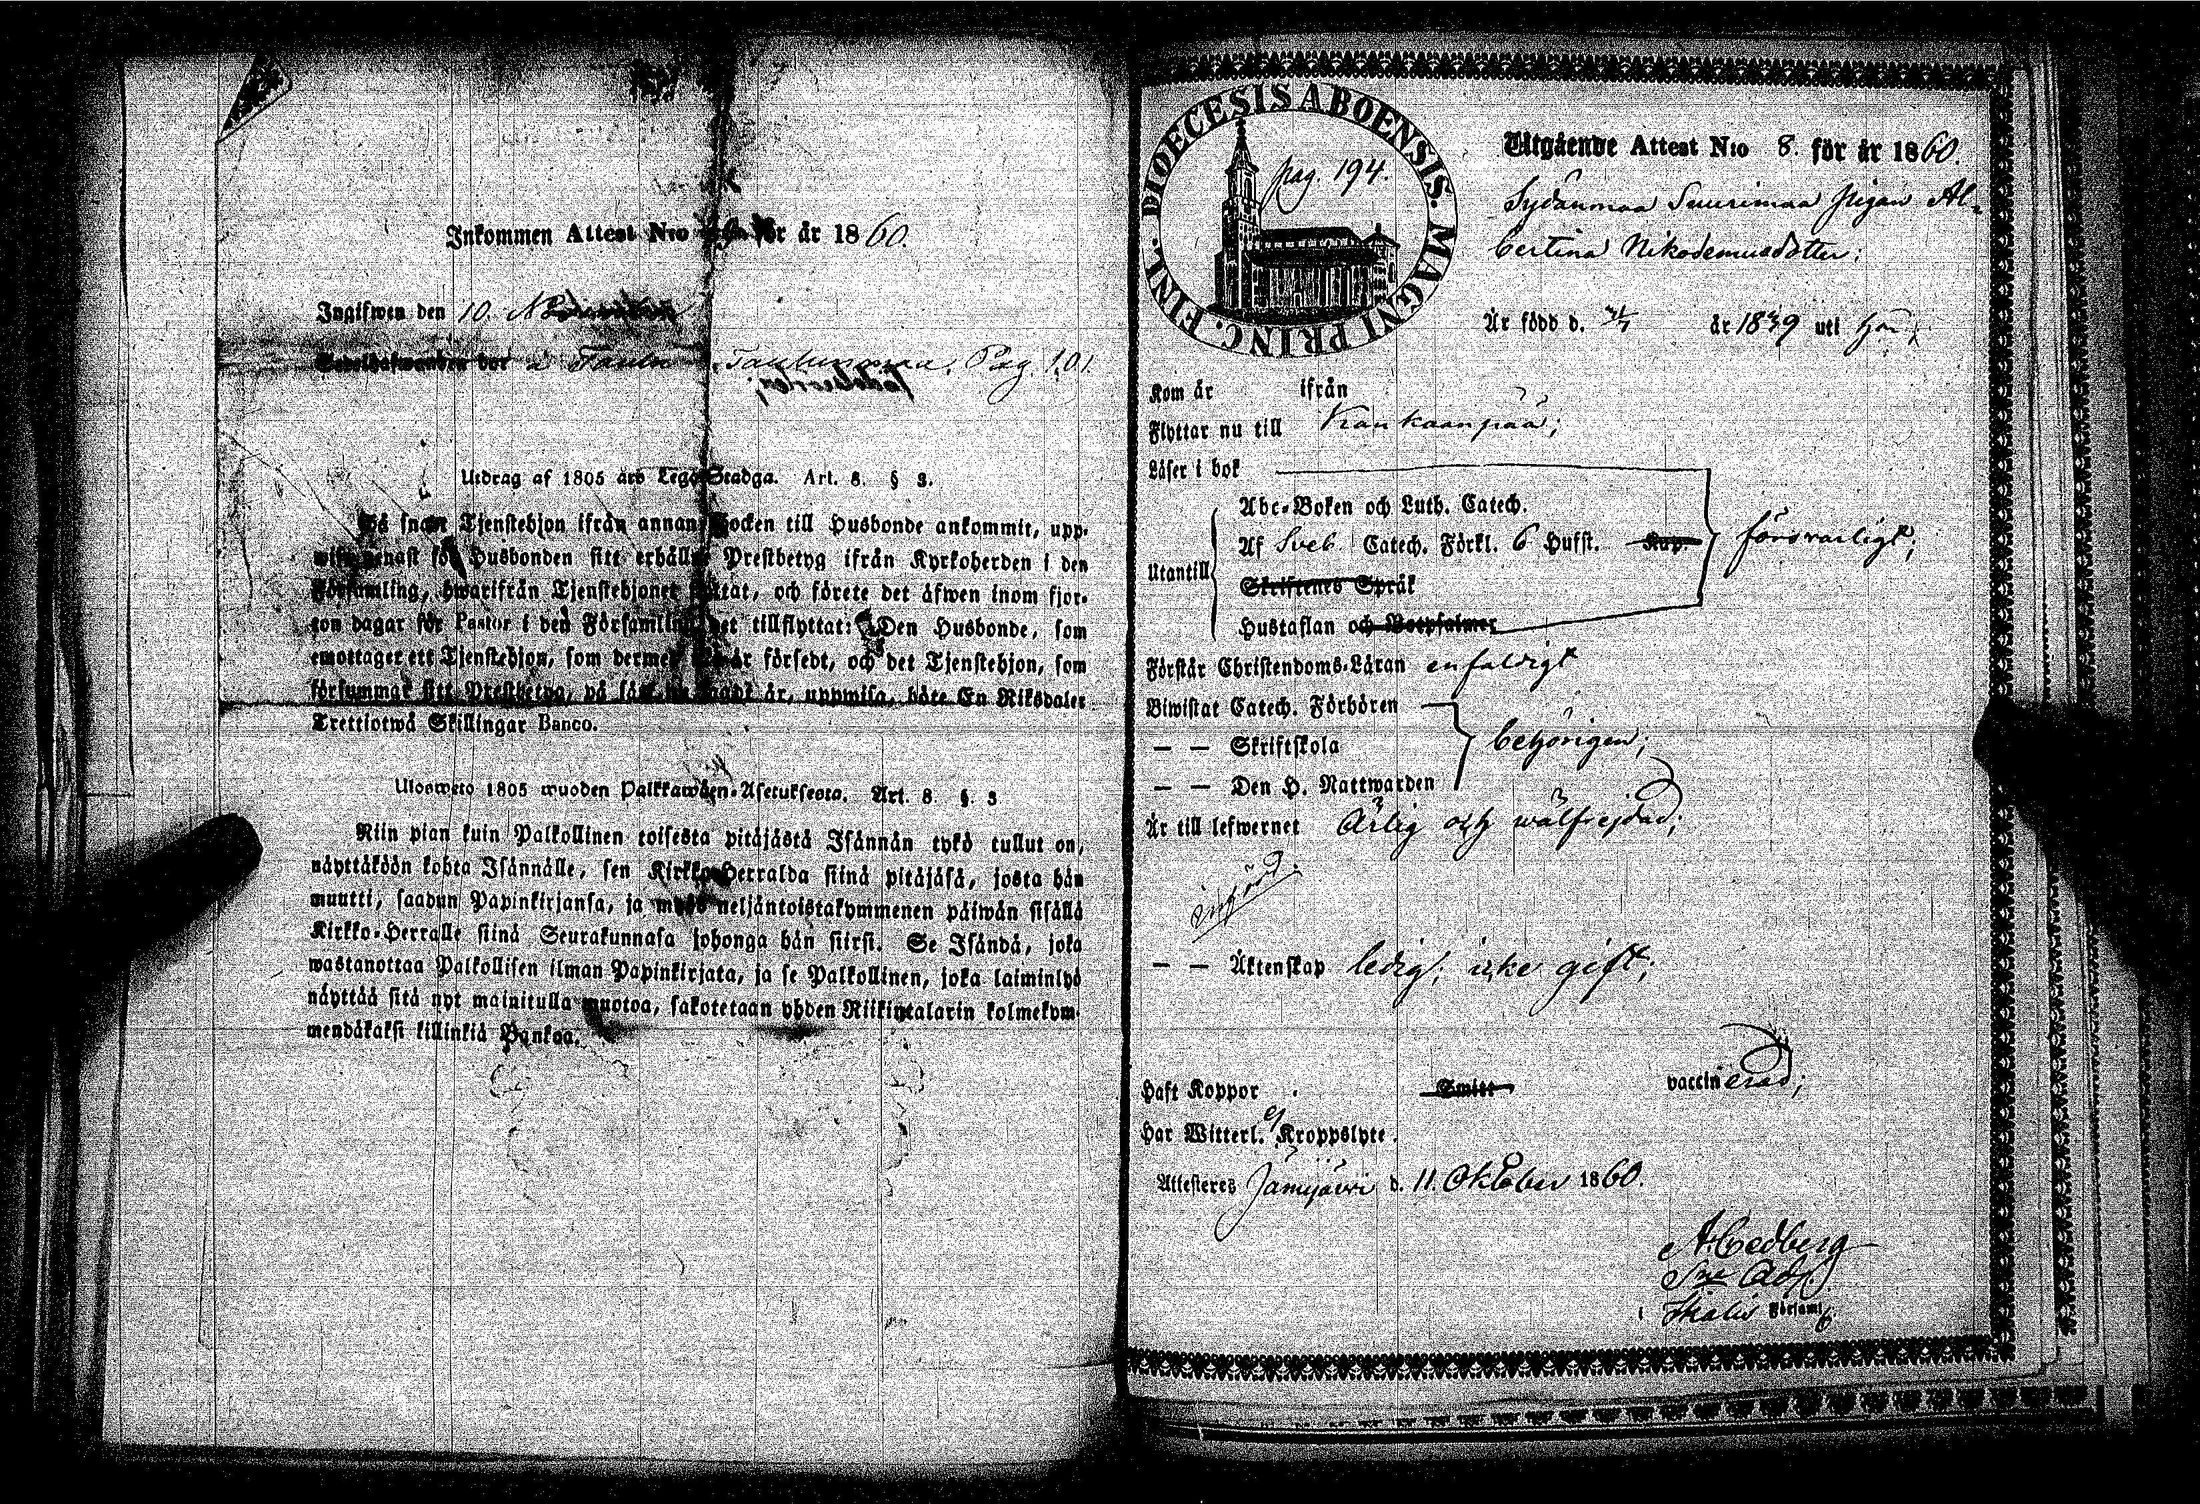 Inkommen Attest N:o för år 1860.
Ingifwen den 10. November
Tauln Pag. 101.
Utdrag af 1805 års Lego-Stadga. Art. 8. § 3.
Så snart Tjenstehjon ifrån annan Socken till Husbonde ankommit, upp-
wise genast för Husbonden sitt erhållne Prestbetyg ifrån Kyrkoherden i den
Församling, hwarifrån Tjenstehjonet flyttat, och förete det äfwen inom fjor-
ton dagar för Pastor i den Församling det tillflyttat: Den Husbonde, som
emottager ett Tjenstehjon, som dermed ej är försedt, och det Tjenstehjon, som
försummar sitt Prestbetyg, på sätt nu sagdt är, uppwisa, böte En Riksdaler
Trettiotwå Skillingar Banco.
Ulosweto 1805 wuoden Palkkawäen-Asetuksesta. Art. 8. §. 3
Niin pian kuin Palkollinen toisesta pitäjästä Isännän tykö tullut on,
näyttäköön kohta Isännälle, sen Kirkko-Herralda siinä pitäjäsä, josta hän
muutti, saadun Papinkirjansa, ja myös neljäntoistakymmenen päiwän sisällä
Kirkko-Herralle siinä Seurakunnasa johonga hän siirsi. Se Isändä, joka
wastanottaa Palkollisen ilman Papinkirjata, ja se Palkollinen, joka laiminlyö
näyttää sitä nyt mainitulla muotoa, sakotetaan yhden Riikintalarin kolmekym-
mendäkaksi killinkiä Bankoa.
DIOECESIS ABOENSIS. MAGNI PRINC. FINL.
pag. 194.
Utgående Attest N:o 8. för år 1860.
Sydänmaa Suurimaa Pigan Al-
bertina Nikodemusdotter;
Är född d. år 1839 uti
Kom år ifrån
Flyttar nu till Kankaanpää;
Läser i bok
Abc-Boken och Luth. Catech.
Utantill Af Sveb. Catech. Förkl. 6 Hufst. Kap. försvarligt;
Skriftenes Språk
Hustaflan och Botpsalmer
Förstår Christendoms-Läran enfaldigt
Biwistat Catech. Förhören
— — Skriftskola behörigen;
— — Den H. Nattwarden
Är till lefwernet Ärlig och wälfrejdad;
införd.
— — Äktenskap ledig; icke gift;
Haft Koppor Smitt vaccinerad;
Har Witterl. ej Kroppslyte.
Attesteras Jämijärvi d. 11. Oktober 1860.
A. Cedberg
Adj.
i Ikalis Församl.